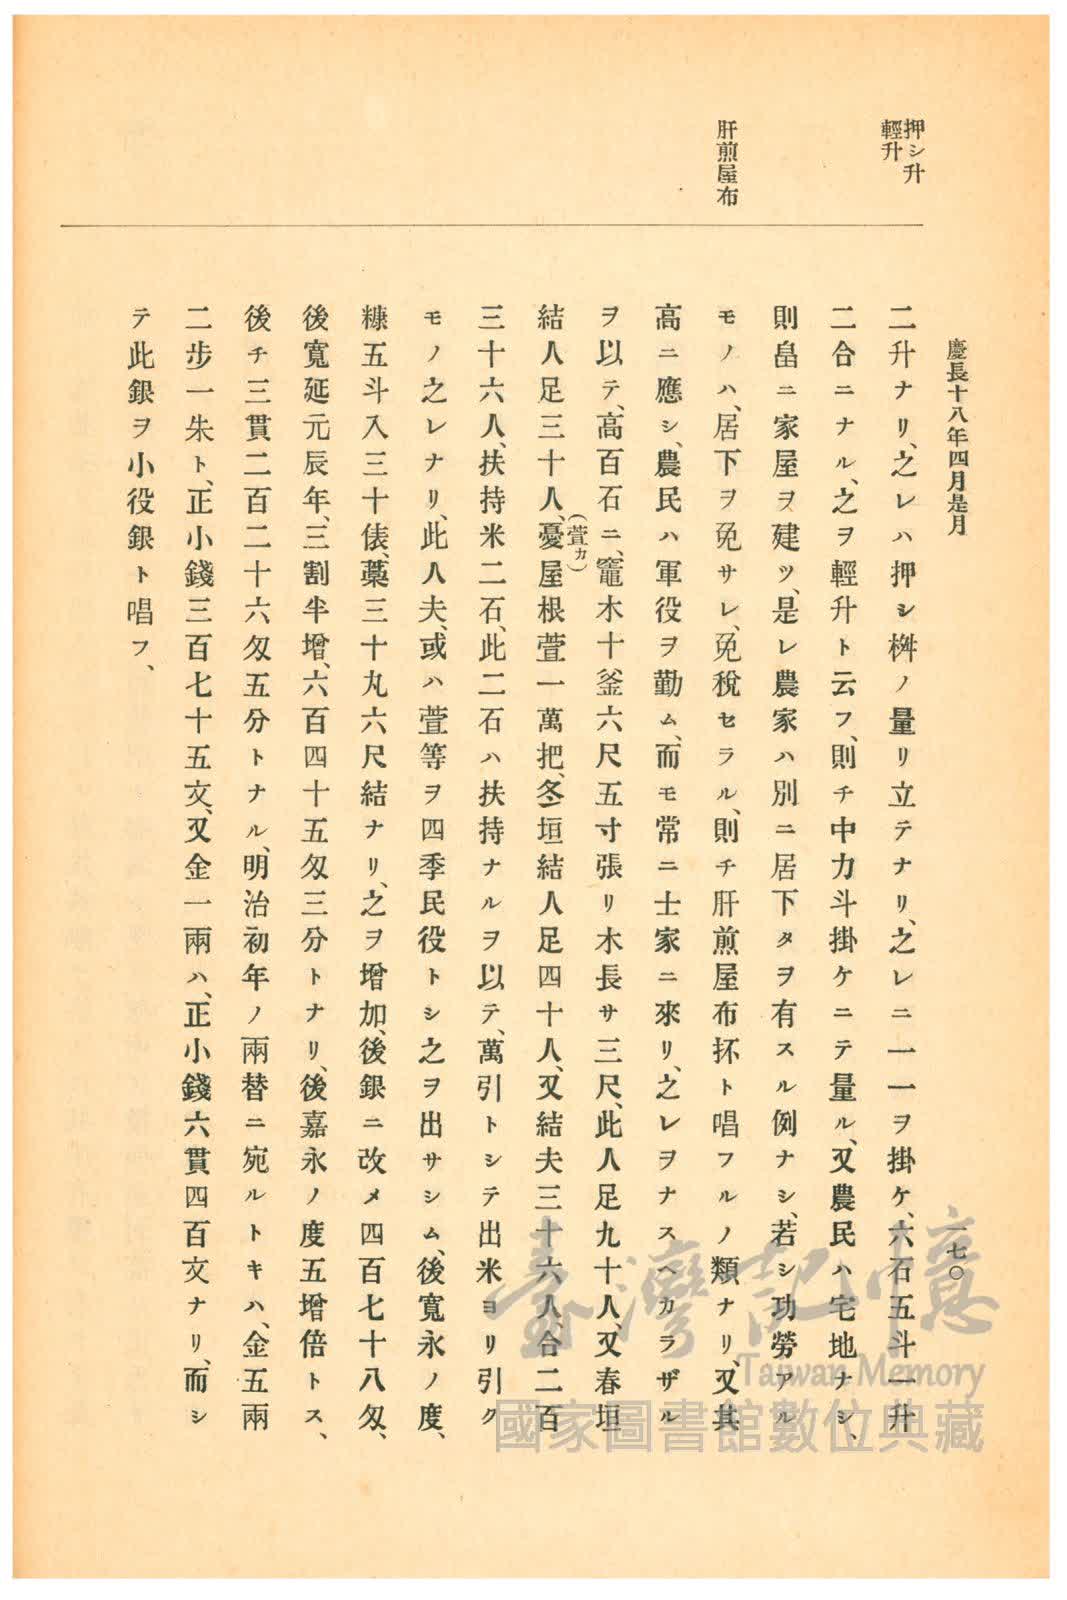 慶長十八年四月是月
一七〇
押シ升
輕升
肝煎屋布
二升ナリ、之レハ押シ桝ノ量リ立テナリ、之レニ一一ヲ掛ケ、六石五斗一升
二合ニナル、之ヲ輕升ト云フ、則チ中力斗掛ケニテ量ル、又農民ハ宅地ナシ、
則畠ニ家屋ヲ建ツ、是レ農家ハ別ニ居下タヲ有スル例ナシ、若シ功勞アル
モノハ、居下ヲ免サレ、免稅セラル、則チ肝煎屋布抔ト唱フルノ類ナリ、又其
高ニ應シ、農民ハ軍役ヲ勤ム、而モ常ニ士家ニ來リ、之レヲナスヘカラザル
ヲ以テ、高百石ニ、竈木十釜、六尺五寸張リ木長サ三尺、此人足九十人、又春垣
結人足三十人、憂屋根萱一萬把、冬垣結人足四十人、又結夫三十六人、合二百
(萱カ)
三十六人、扶持米二石、此二石ハ扶持ナルヲ以テ、萬引トシテ出米ヨリ引ク
モノ之レナリ、此人夫、或ハ萱等ヲ四季民役トシ之ヲ出サシム、後寬永ノ度、
糠五斗入三十俵、藁三十丸六尺結ナリ、之ヲ增加、後銀ニ改メ四百七十八匁、
後寬延元辰年、三割半增、六百四十五匁三分トナリ、後嘉永ノ度五增倍トス、
後チ三貫二百二十六匁五分トナル、明治初年ノ兩替ニ宛ルトキハ、金五兩
二步一朱ト、正小錢三百七十五文、又金一兩ハ、正小錢六貫四百文ナリ、而シ
テ此銀ヲ小役銀ト唱フ、
臺灣記憶
Taiwan Memory
國家圖書館數位典藏